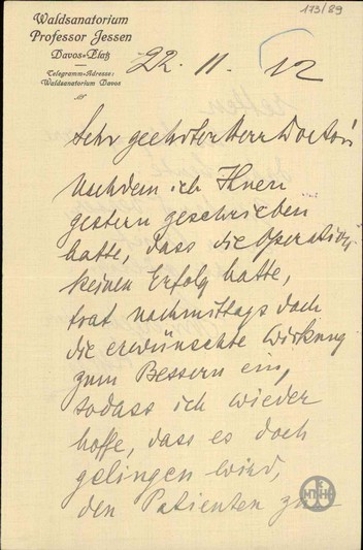 173/89
Waldsanatorium
Professor Jessen
Davos-Platz
Telegramm-Adresse:
Waldsanatorium Davos
22. 11. 12
Sehr geehrter Herr Doctor
Nachdem ich Ihnen
gestern geschrieben
hatte, dass die Operation
keinen Erfolg hatte,
trat nachmittags doch
die erwünschte Wirkung
zum Bessern ein,
sodass ich wieder
hoffe, dass es doch
gelingen wird,
den Patienten zu